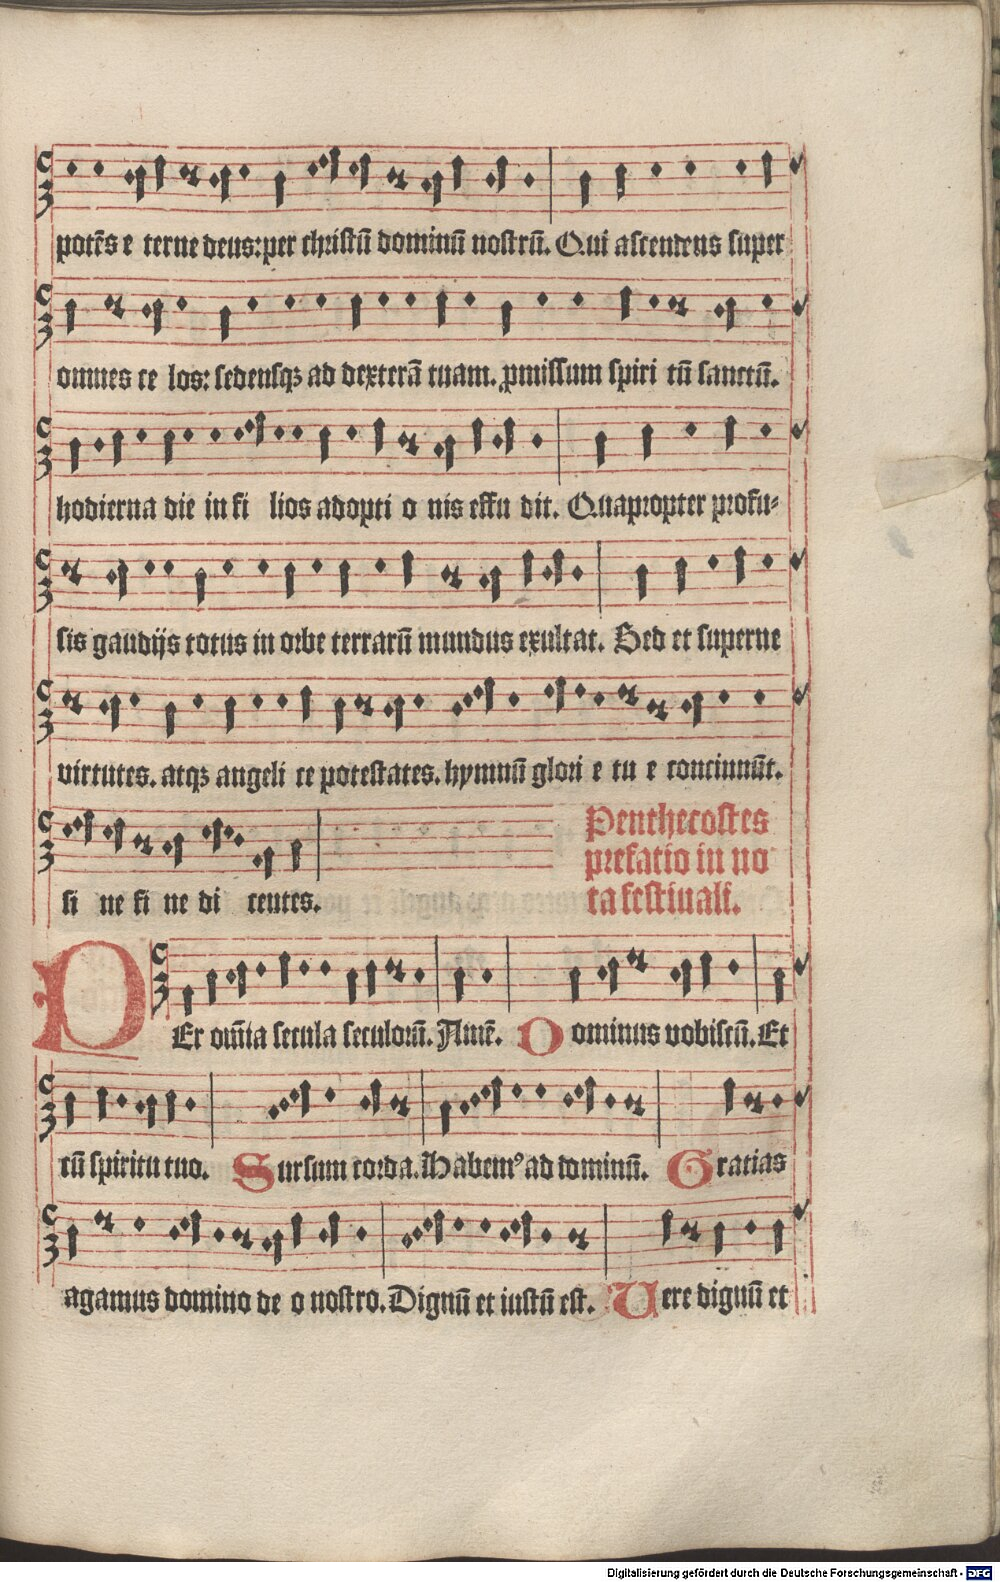 potēs e terne deus: per christū dominū nostrū. Qui ascendens super
omnes ce los: sedensqꝫ ad dexterā tuam. ꝓmissum spiri tū sanctū.
hodierna die in fi lios adopti o nis effu dit. Quapropter profu⸗
sis gaudijs totus in orbe terrarū mundus exultat. Sed et superne
virtutes. atqꝫ angeli ce potestates. hymnū glori e tu e concinnūt.
si ne fi ne di centes.
Penthecostes
prefatio in no
ta festiuali.
PEr om̄ia secula seculoꝝ. Amē. Dominus vobiscū. Et
cū spiritu tuo. Sursum corda. Habemꝰ ad dominū. Gratias
agamus domino de o nostro. Dignū et iustū est. Uere dignū et
Digitalisierung gefördert durch die Deutsche Forschungsgemeinschaft - DFG